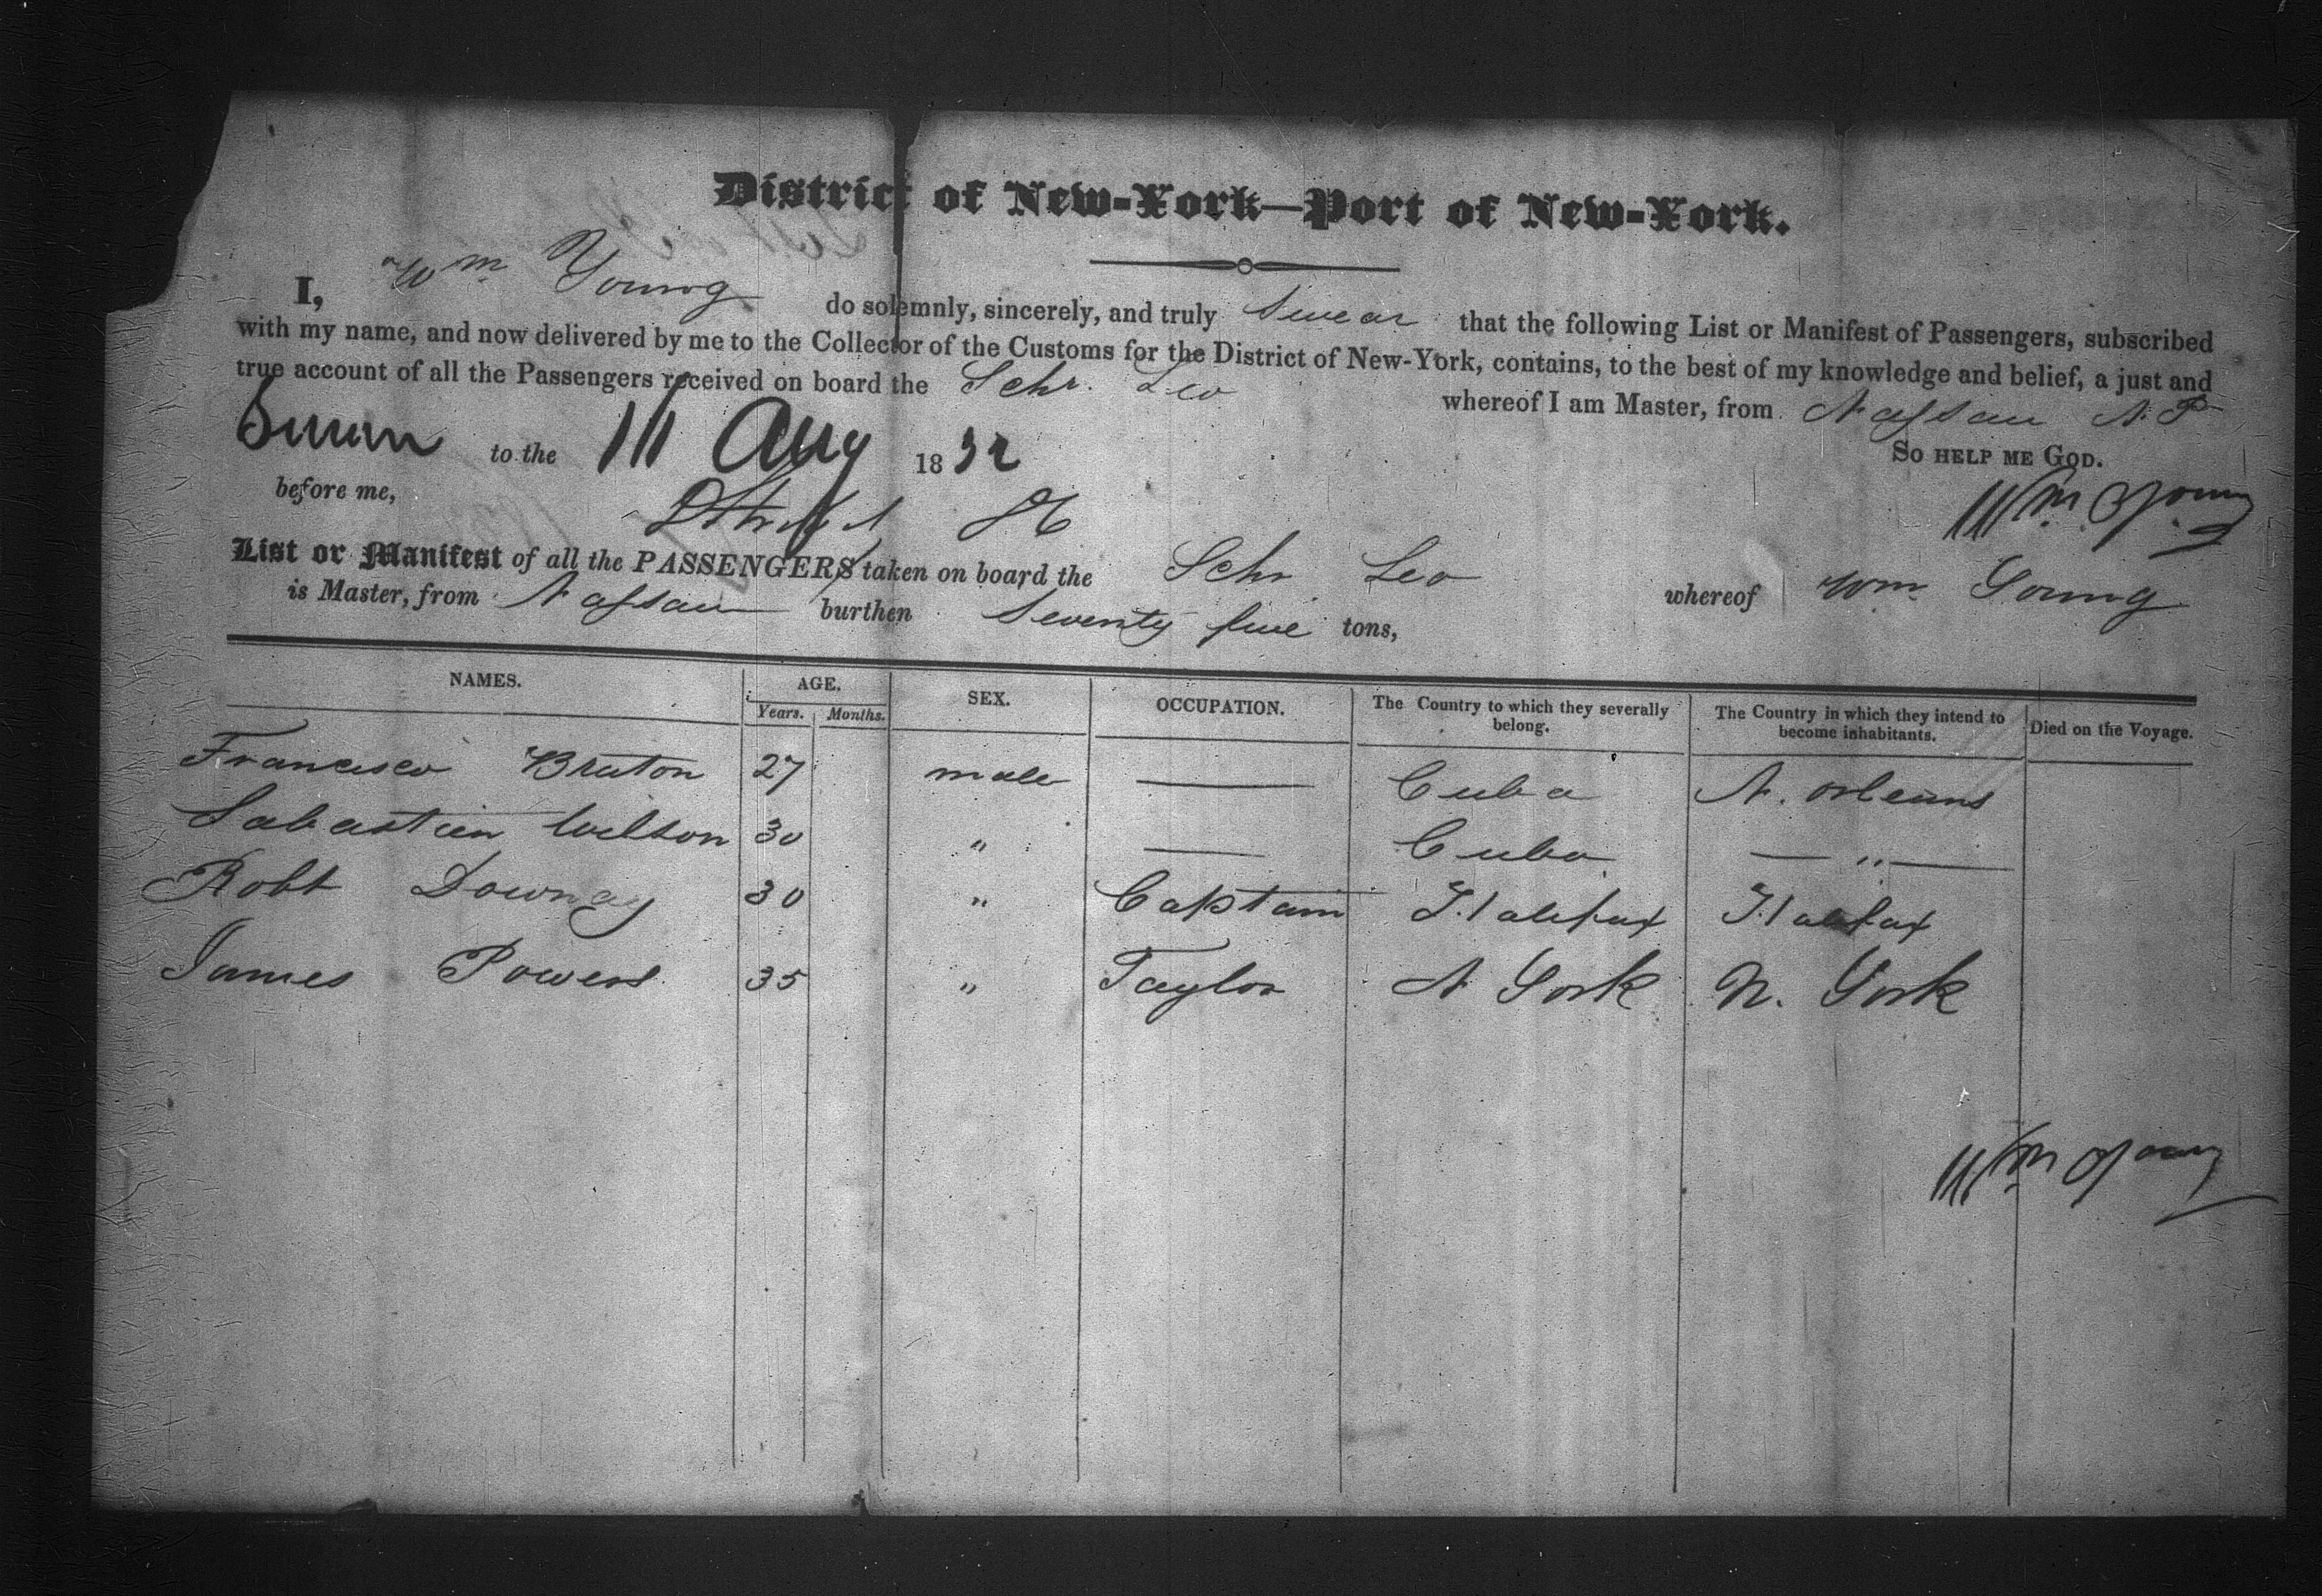 District of New-York—Port of New-York.
I, Wm Young do solemnly, sincerely, and truly Swear that the following List or Manifest of Passengers, subscribed
with my name, and now delivered by me to the Collector of the Customs for the District of New-York, contains, to the best of my knowledge and belief, a just and
true account of all the Passengers received on board the Schr. Leo whereof I am Master, from Nassau N.P
So help me God.
Sworn to the Aug 1832
before me, Wm Young
List or Manifest of all the PASSENGERS taken on board the Schr Leo whereof Wm Young
is Master, from Nassau burthen Seventy five tons,
NAMES. AGE. SEX. OCCUPATION. The Country to which they severally belong. The Country in which they intend to become inhabitants. Died on the Voyage.
Years. Months.
Francisco Bruton 27 male — Cuba N. Orleans
Sabastien Wilson 30 " — Cuba — " —
Robt Downey 30 " Captain Halifax Halifax
James Powers 35 " Taylor N York N. York
Wm Young